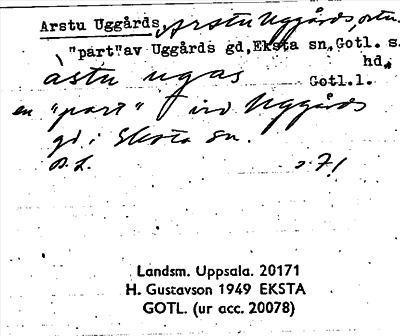 Arstu Uggårds, Arstu Uggårds,
"part" av Uggårds gd, Eksta sn, Gotl. s.
hd,
astu ugas Gotl.l.
en "part" Uggårds
gd i Eksta sn.
Landsm. Uppsala. 20171
H. Gustavson 1949 EKSTA
GOTL. (ur acc. 20078)